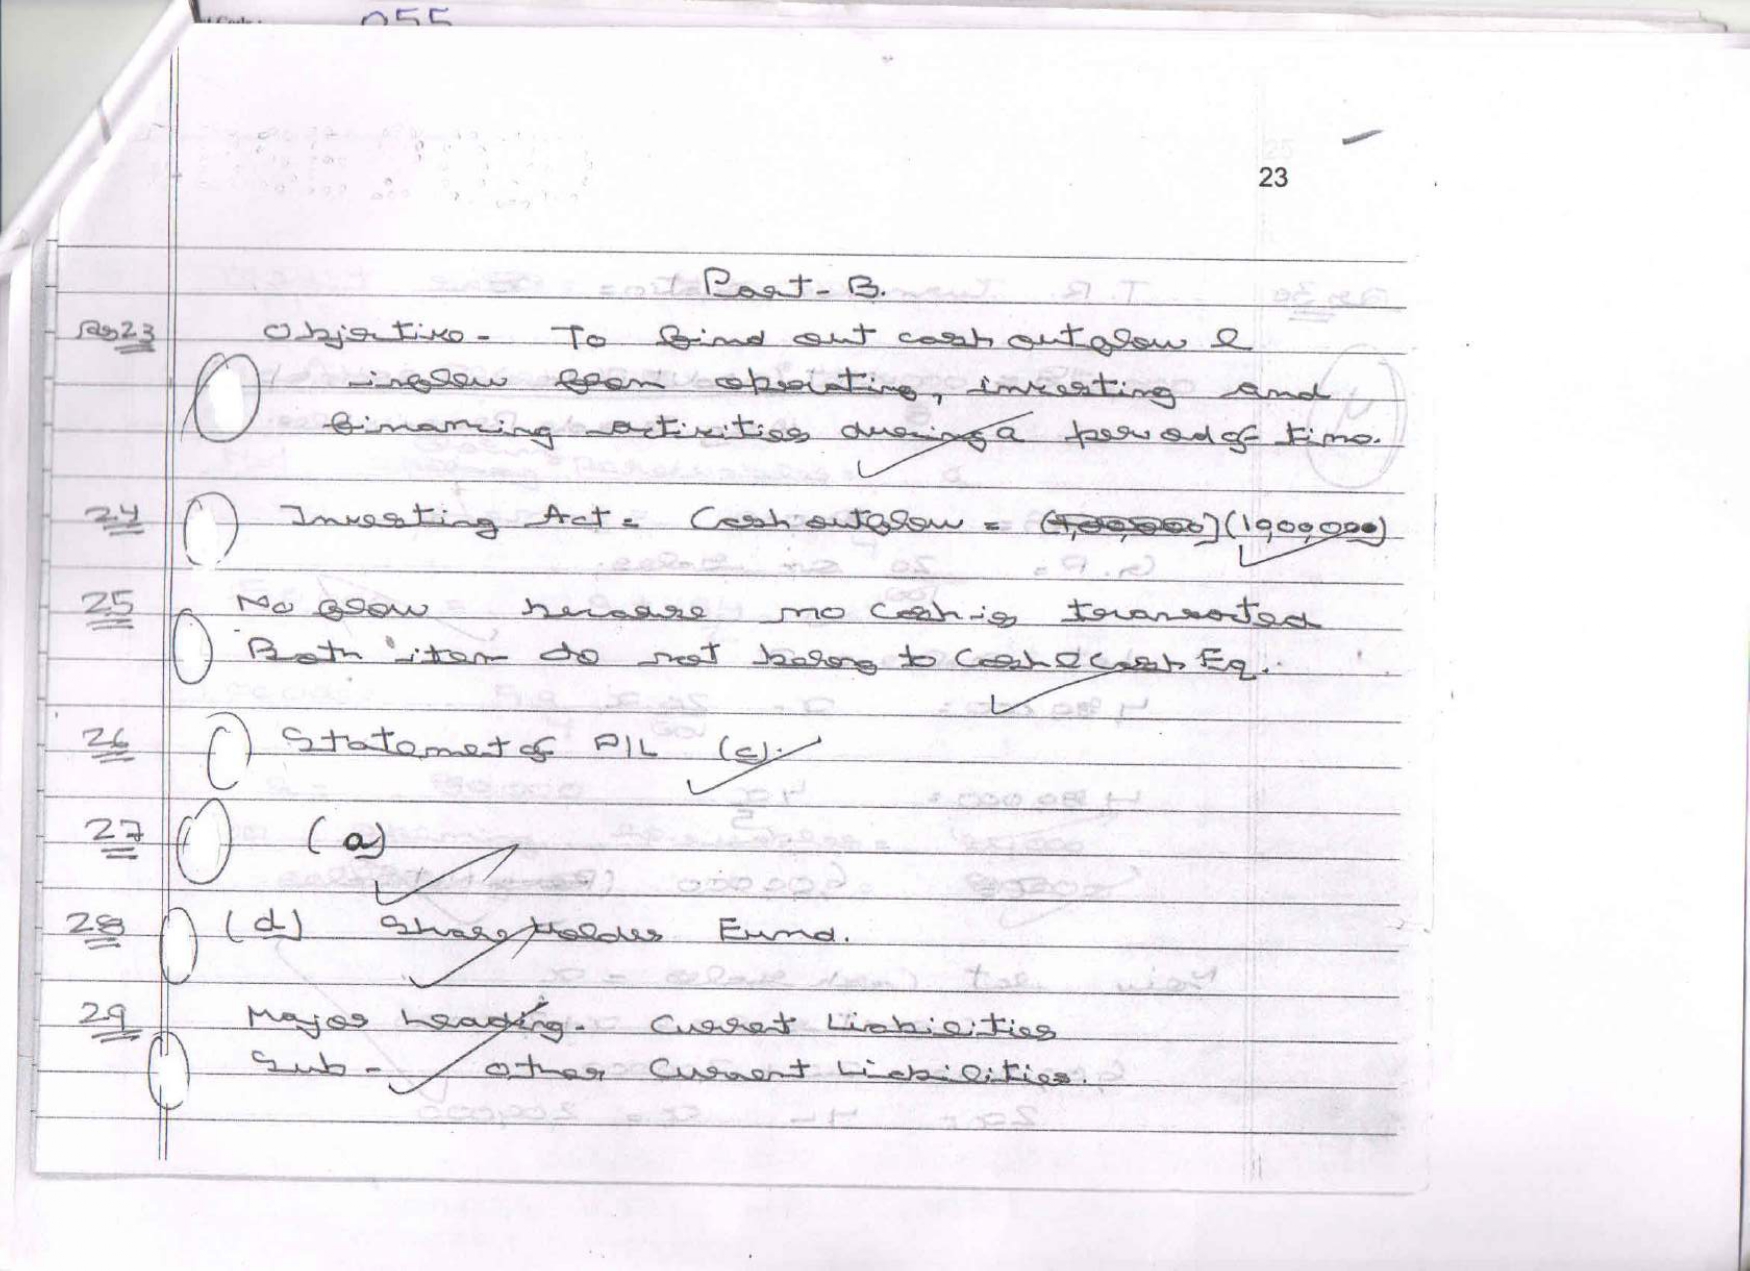 055
23
Part-B.
Ans23 Objective- To find out cash outflow &
inflow from operating, investing and
financing activities during a period of time.
24 Investing Act= Cash outflow = (1,900,000)
25 No flow because no cash is transacted
Both item do not belong to Cash & Cash Eq.
26 Statemet of P/L (c).
27 (a)
28 (d) Share Holder Fund.
29 Major heading- Current Liabilities
Sub- other Current Liabilities.